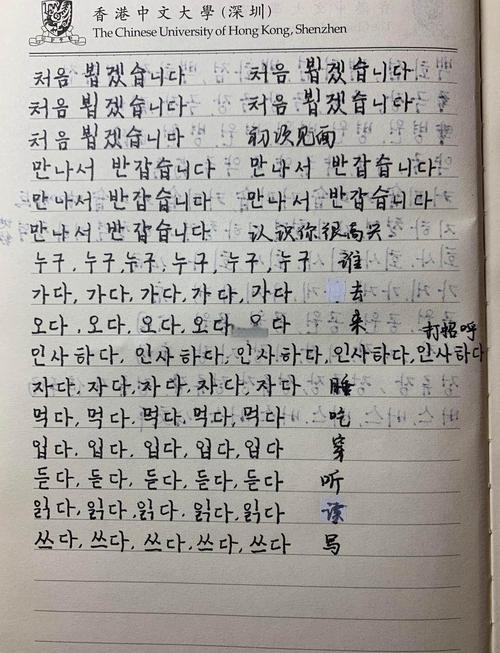 香港中文大學(深圳)
The Chinese University of Hong Kong, Shenzhen
처음 뵙겠습니다 처음 뵙겠습니다
처음 뵙겠습니다 처음 뵙겠습니다
처음 뵙겠습니다 初次见面
만나서 반갑습니다 만나서 반갑습니다
만나서 반갑습니다 만나서 반갑습니다
만나서 반갑습니다 认识你很高兴
누구, 누구, 누구, 누구, 누구, 누구 谁
가다, 가다, 가다, 가다, 가다 去
오다, 오다, 오다, 오다 오다 来
인사하다, 인사하다, 인사하다, 인사하다, 인사하다 打招呼
자다, 자다, 자다, 자다, 자다 睡
먹다, 먹다, 먹다, 먹다, 먹다 吃
입다, 입다, 입다, 입다, 입다 穿
듣다, 듣다, 듣다, 듣다, 듣다 听
읽다, 읽다, 읽다, 읽다, 읽다 读
쓰다, 쓰다, 쓰다, 쓰다, 쓰다 写